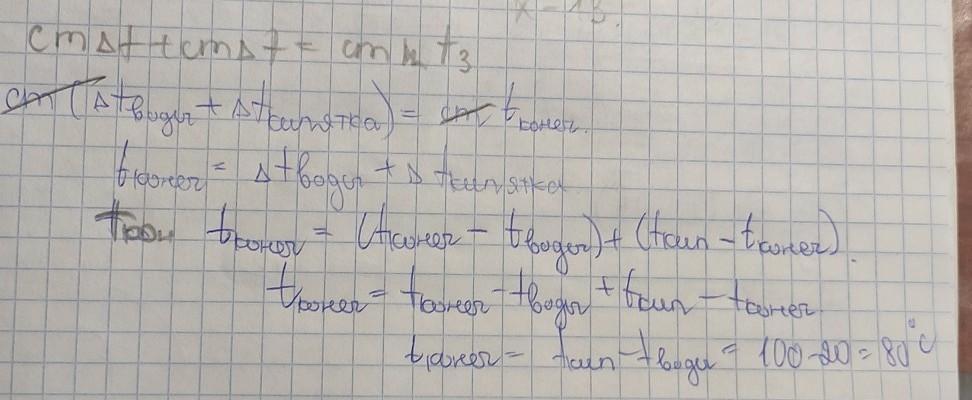 cmΔt + cmΔt = cm t₃
cm (Δtводы + Δtкипятка) = cm tконеч.
tконеч = Δtводы + Δtкипятка
tконеч = (tконеч - tводы) + (tкип - tконеч).
tконеч = tконеч - tводы + tкип - tконеч
tконеч = tкип - tводы = 100 - 20 = 80°C